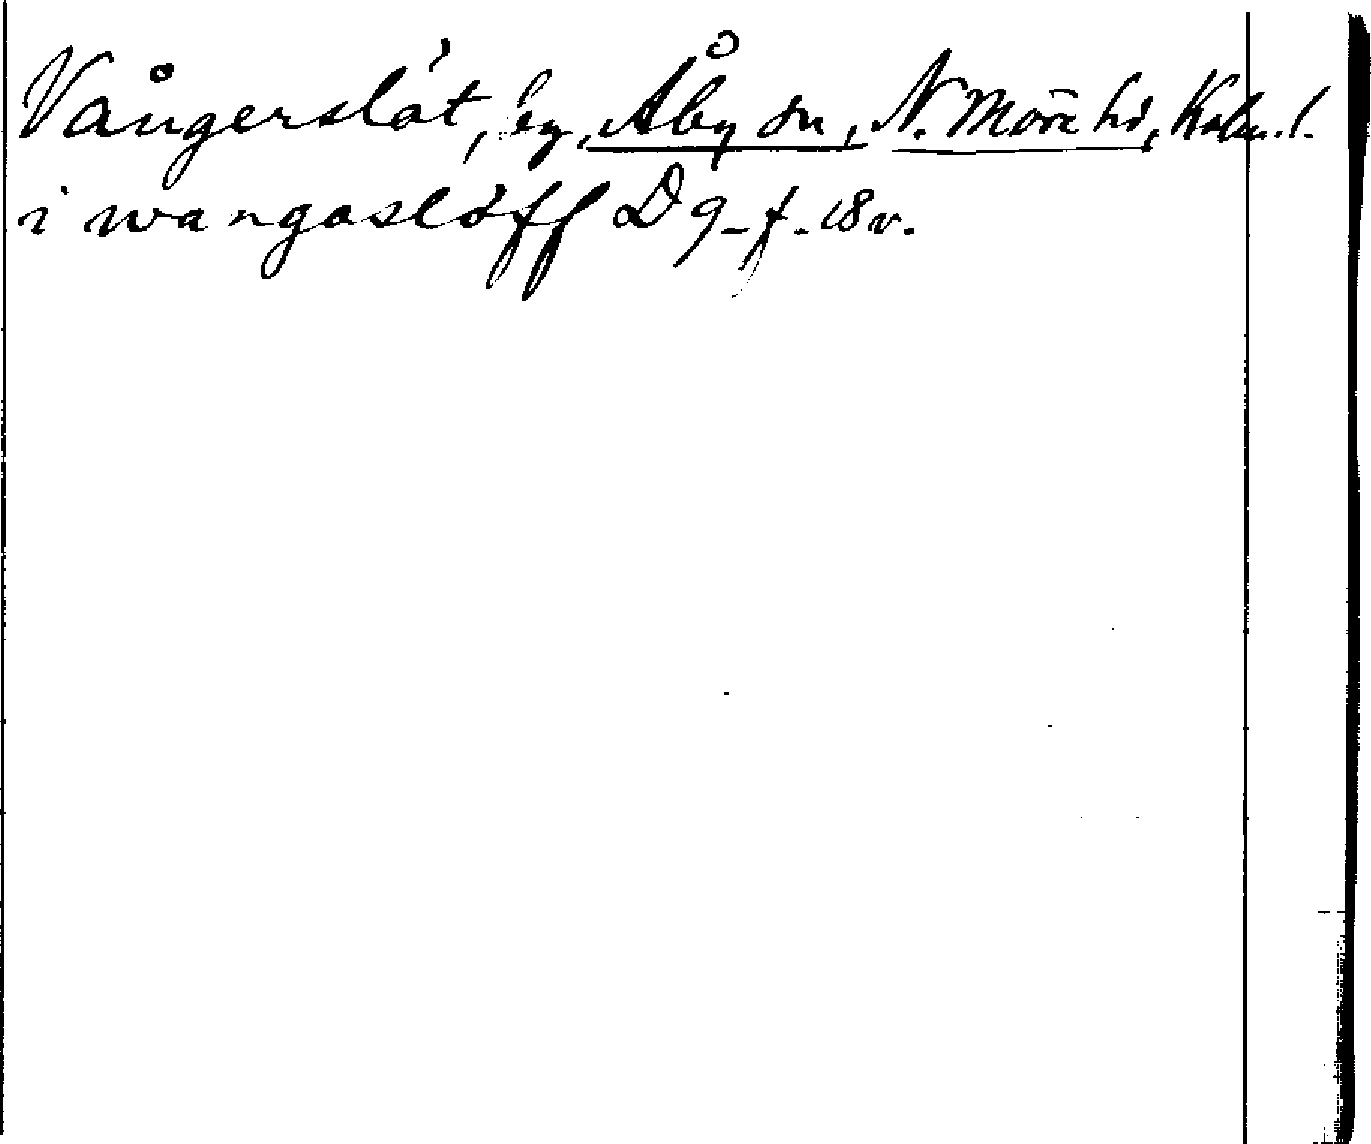 Vångerslät, by, Åby sn, N. Möre hd, Kalm. l.
i wangaslöff D 9 f. 18 v.